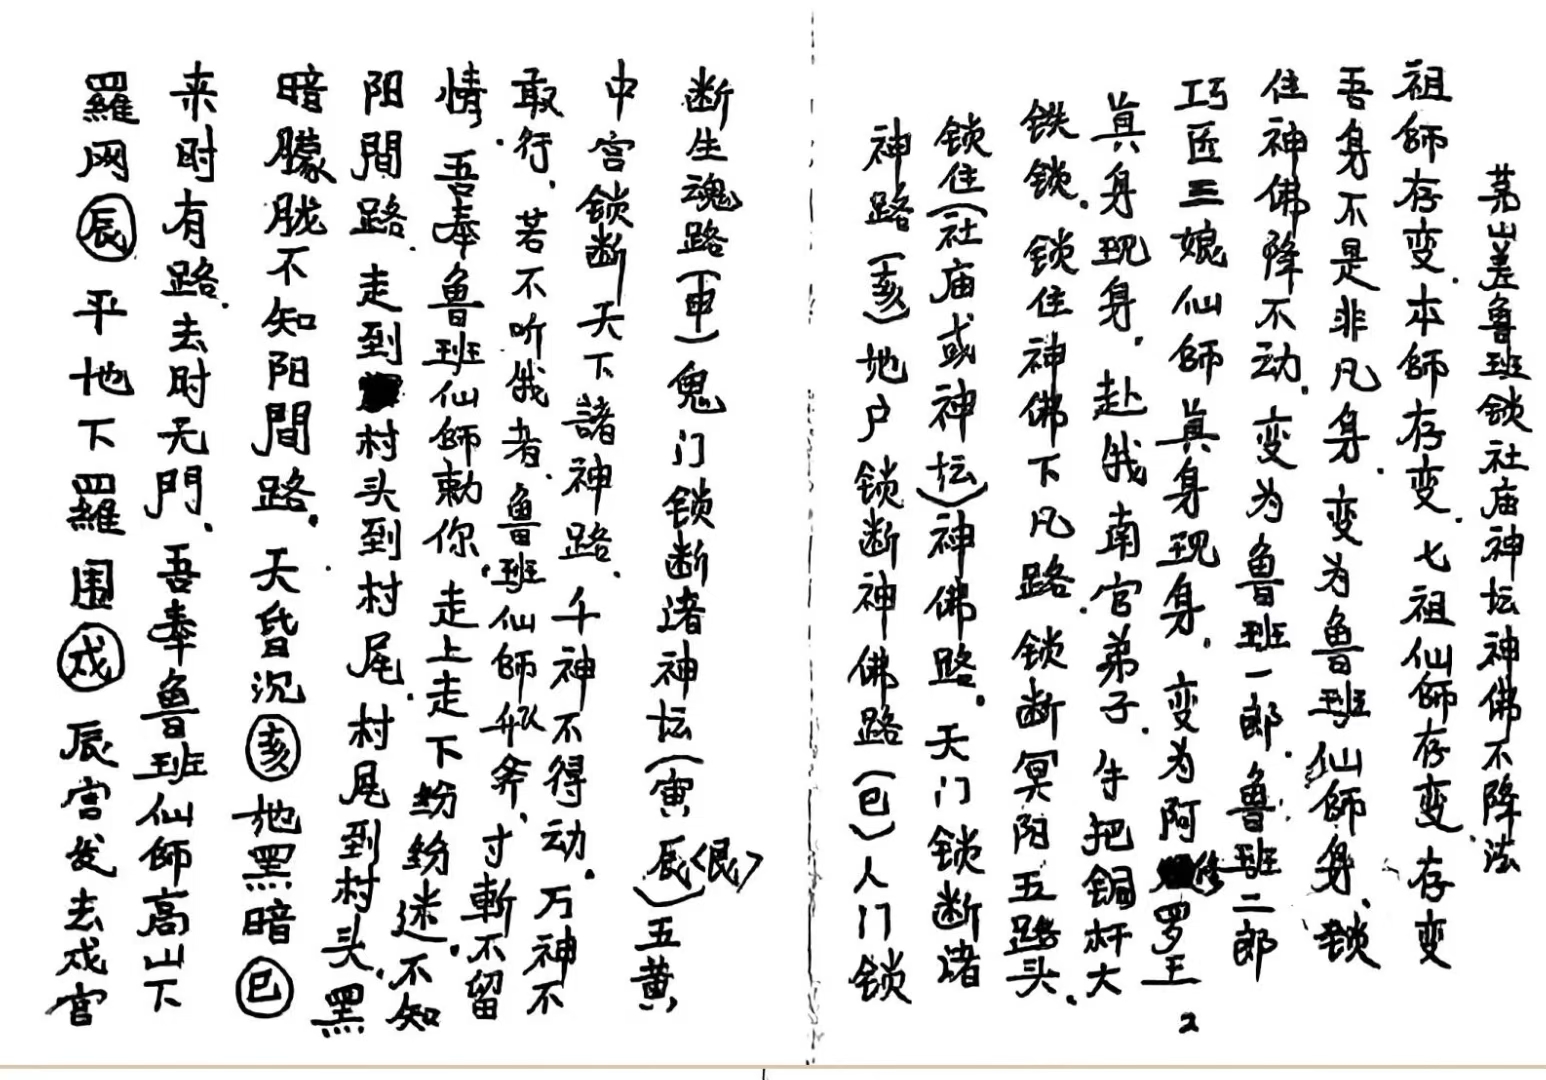 茅山差鲁班锁社庙神坛神佛不降法
祖師存变.本師存变.七祖仙師存变.存变
吾身不是非凡身.变为鲁班仙師身、锁
住神佛降不动.变为鲁班一郎.鲁班二郎
巧匠三娘仙師真身现身.变为阿修罗王
真身现身.赴我南官弟子.牛把铜杆大
铁锁.锁住神佛下凡路.锁断冥阳五路头.
锁住(社庙或神坛)神佛路.天门锁断诸
神路(亥)地户锁断神佛路(巳)人门锁
2
断生魂路(申)鬼门锁断诸神坛(寅辰<艮>)五黄
中宫锁断天下諸神路.千神不得动.万神不
敢行.若不听我者.鲁班仙師斧、寸斬不留
情.吾奉鲁班仙師勅你.走上走下纷纷迷.不知
阳間路.走到村头到村尾.村尾到村头.黑
暗朦胧不知阳間路.天昏沉(亥)地黑暗(巳)
来时有路.去时无門.吾奉鲁班仙師高山下
羅网(辰)平地下羅围(戍)辰宫发去戍宫